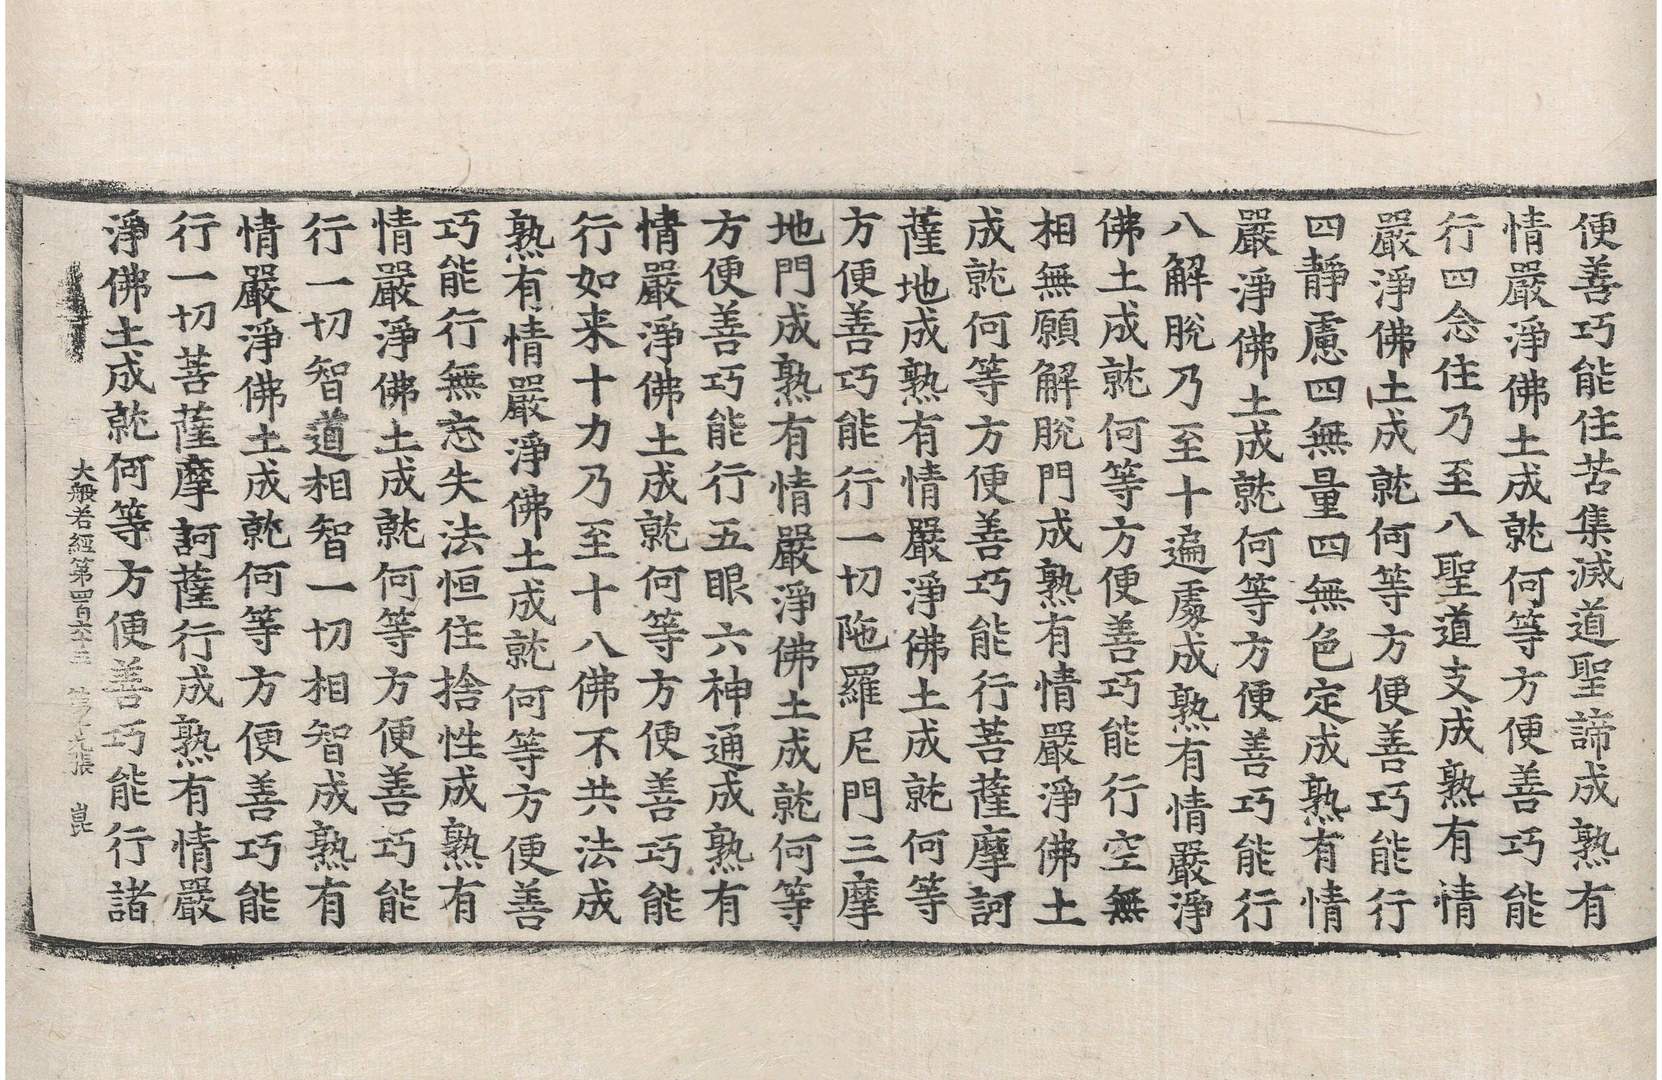 便善巧能住苦集滅道聖諦成熟有
情嚴淨佛土成就何等方便善巧能
行四念住乃至八聖道支成熟有情
嚴淨佛土成就何等方便善巧能行
四靜慮四無量四無色定成熟有情
嚴淨佛土成就何等方便善巧能行
八解脫乃至十遍處成熟有情嚴淨
佛土成就何等方便善巧能行空無
相無願解脫門成熟有情嚴淨佛土
成就何等方便善巧能行菩薩摩訶
薩地成熟有情嚴淨佛土成就何等
方便善巧能行一切陁羅尼門三摩
地門成熟有情嚴淨佛土成就何等
方便善巧能行五眼六神通成熟有
情嚴淨佛土成就何等方便善巧能
行如来十力乃至十八佛不共法成
熟有情嚴淨佛土成就何等方便善
巧能行無忘失法恒住捨性成熟有
情嚴淨佛土成就何等方便善巧能
行一切智道相智一切相智成熟有
情嚴淨佛土成就何等方便善巧能
行一切菩薩摩訶薩行成熟有情嚴
淨佛土成就何等方便善巧能行諸
大般若經第四百六十五 第 九張 崑